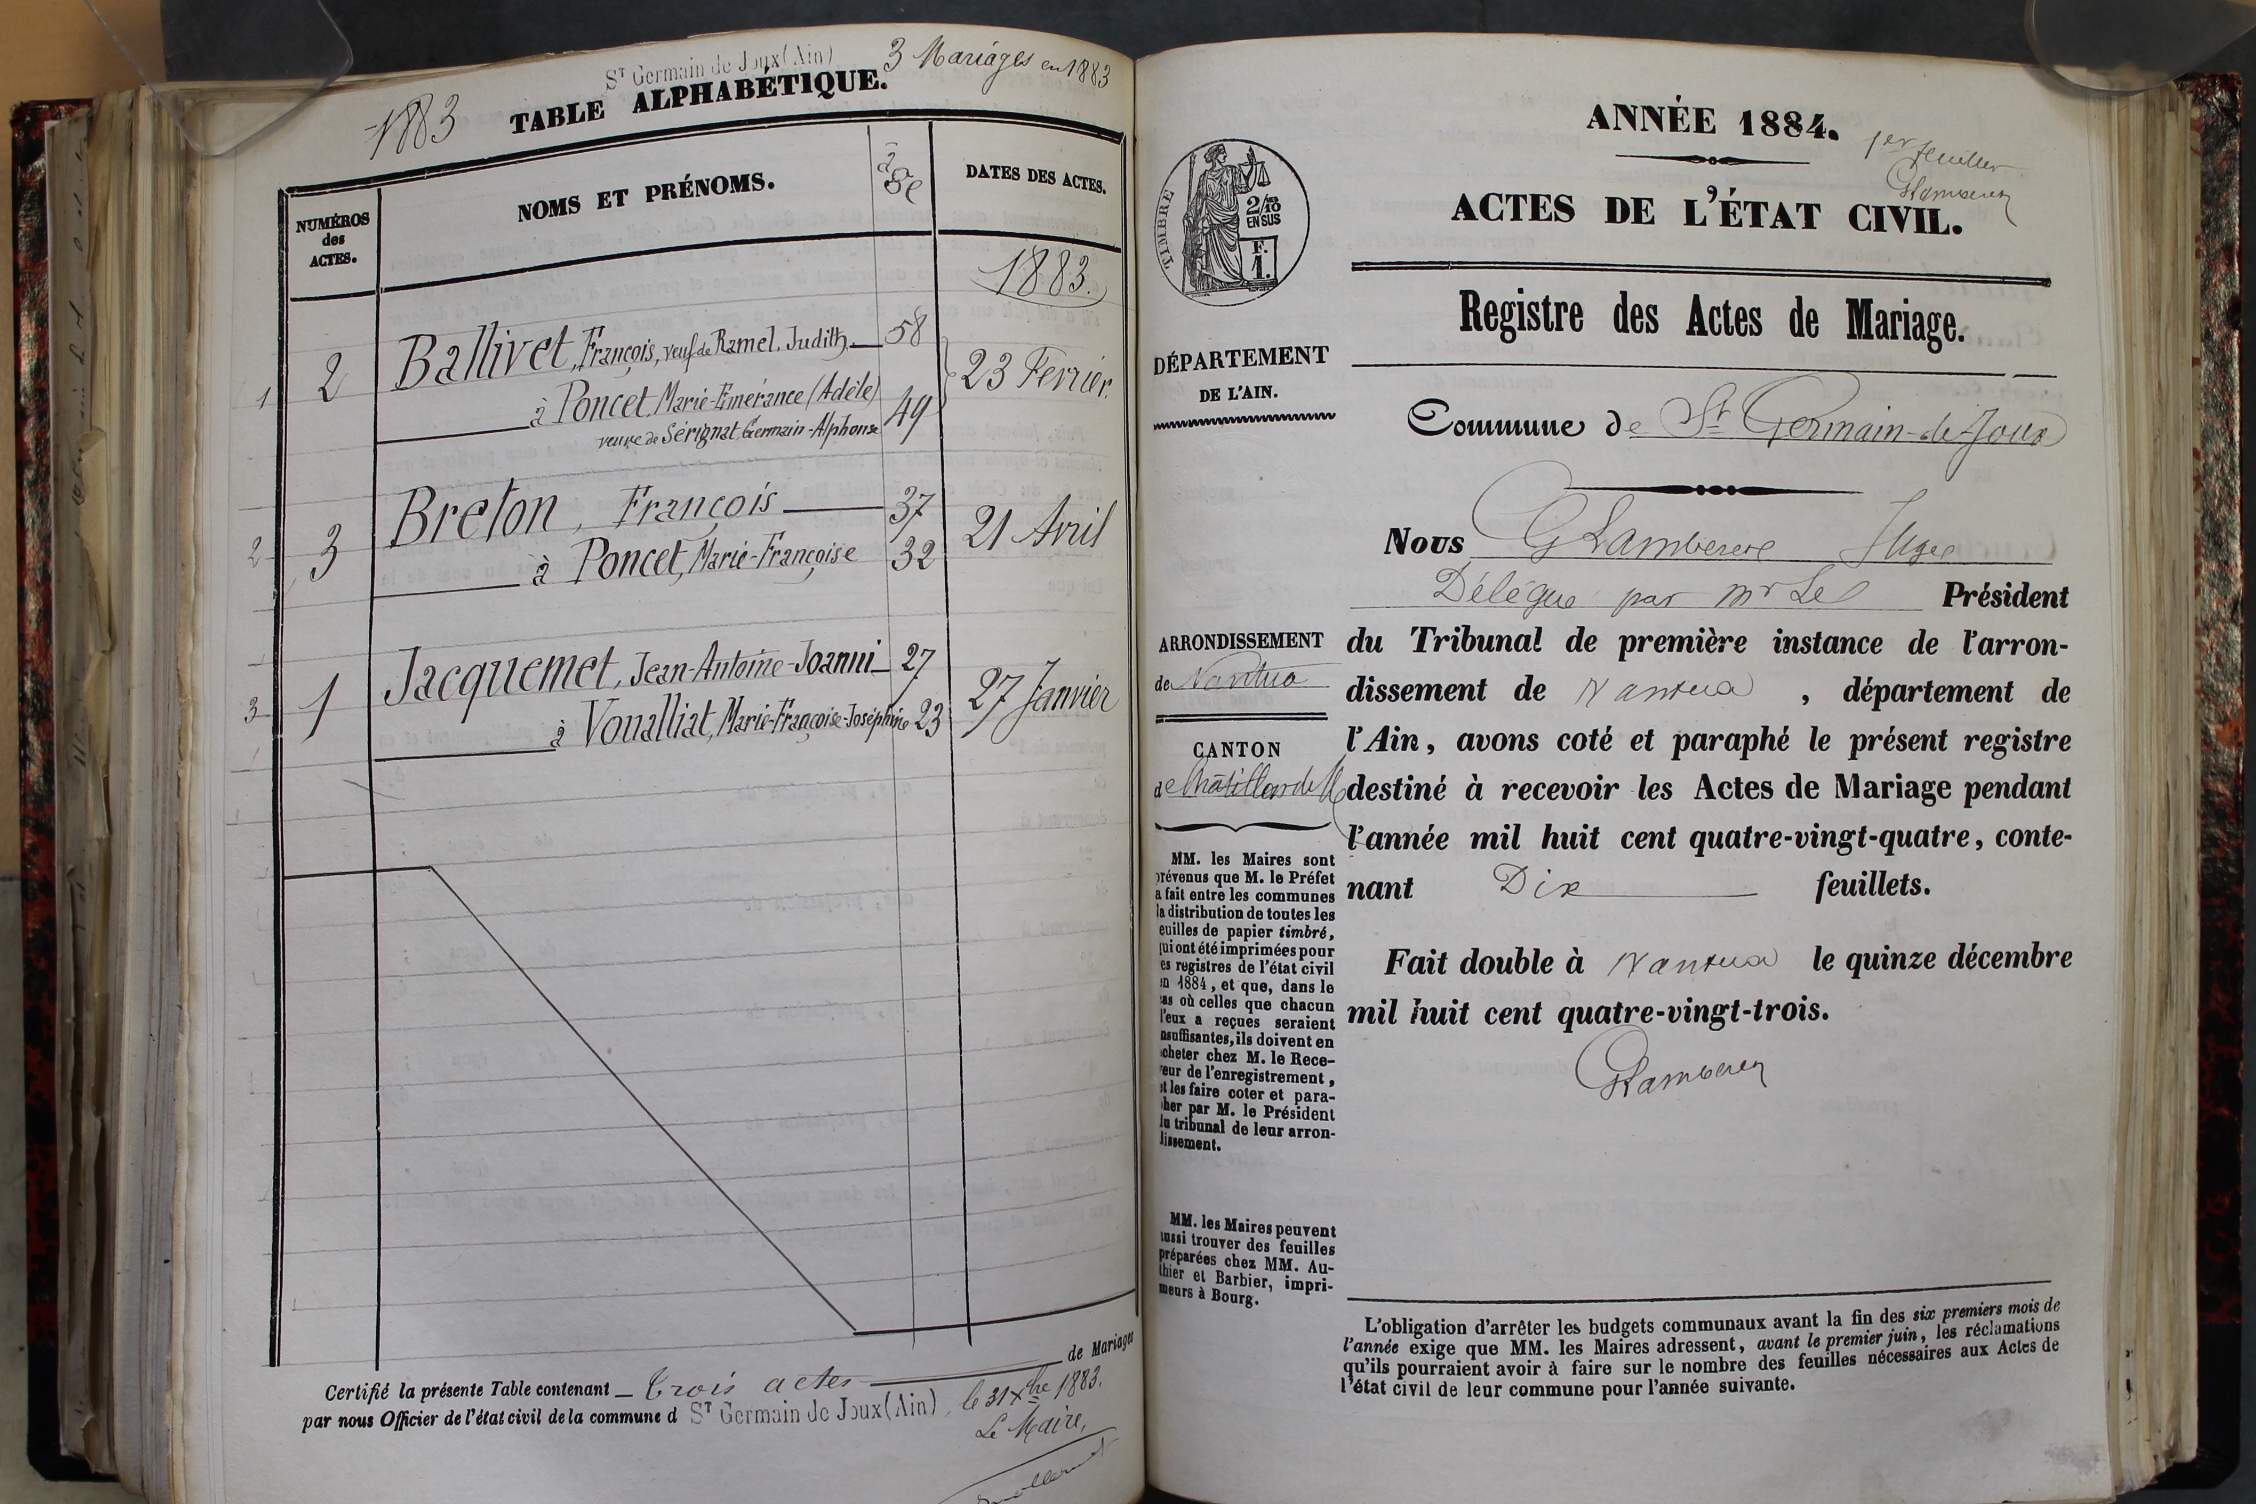 St Germain de Joux (Ain)
3 Mariages en 1883
1883
TABLE ALPHABÉTIQUE.
NUMÉROS
des
ACTES.
NOMS ET PRÉNOMS.
âge
DATES DES ACTES.
1883.
1 2 Ballivet, François, veuf de Ramel, Judith 58
à Poncet, Marie-Emérance (Adèle) 49 23 Fevrier.
veuve de Sérignat, Germain-Alphonse
2 3 Breton, François 37
à Poncet, Marie-Françoise 32 21 Avril
3 1 Jacquemet, Jean-Antoine-Joanni 27
à Voualliat, Marie-Françoise-Joséphine 23 27 Janvier
Certifié la présente Table contenant trois actes de Mariages
par nous Officier de l'état civil de la commune d St Germain de Joux (Ain), le 31 Xbre 1883.
Le Maire,
ANNÉE 1884.
1er feuillet
ACTES DE L'ÉTAT CIVIL.
TIMBRE
2/10
EN SUS
F.
1.
Registre des Actes de Mariage.
DÉPARTEMENT
DE L'AIN.
Commune de St Germain-de-Joux
Nous Juge
Délégué par mr Le Président
ARRONDISSEMENT
de Nantua
CANTON
de Châtillon de M
du Tribunal de première instance de l'arron-
dissement de Nantua, département de
l'Ain, avons coté et paraphé le présent registre
destiné à recevoir les Actes de Mariage pendant
l'année mil huit cent quatre-vingt-quatre, conte-
nant Dix feuillets.
Fait double à Nantua le quinze décembre
mil huit cent quatre-vingt-trois.
MM. les Maires sont
prévenus que M. le Préfet
a fait entre les communes
la distribution de toutes les
euilles de papier timbré,
qui ont été imprimées pour
es registres de l'état civil
en 1884, et que, dans le
as où celles que chacun
l'eux a reçues seraient
nsuffisantes, ils doivent en
cheter chez M. le Rece-
eur de l'enregistrement,
et les faire coter et para-
her par M. le Président
du tribunal de leur arron-
lissement.
MM. les Maires peuvent
aussi trouver des feuilles
préparées chez MM. Au-
thier et Barbier, impri-
meurs à Bourg.
L'obligation d'arrêter les budgets communaux avant la fin des six premiers mois de
l'année exige que MM. les Maires adressent, avant le premier juin, les réclamations
qu'ils pourraient avoir à faire sur le nombre des feuilles nécessaires aux Actes de
l'état civil de leur commune pour l'année suivante.